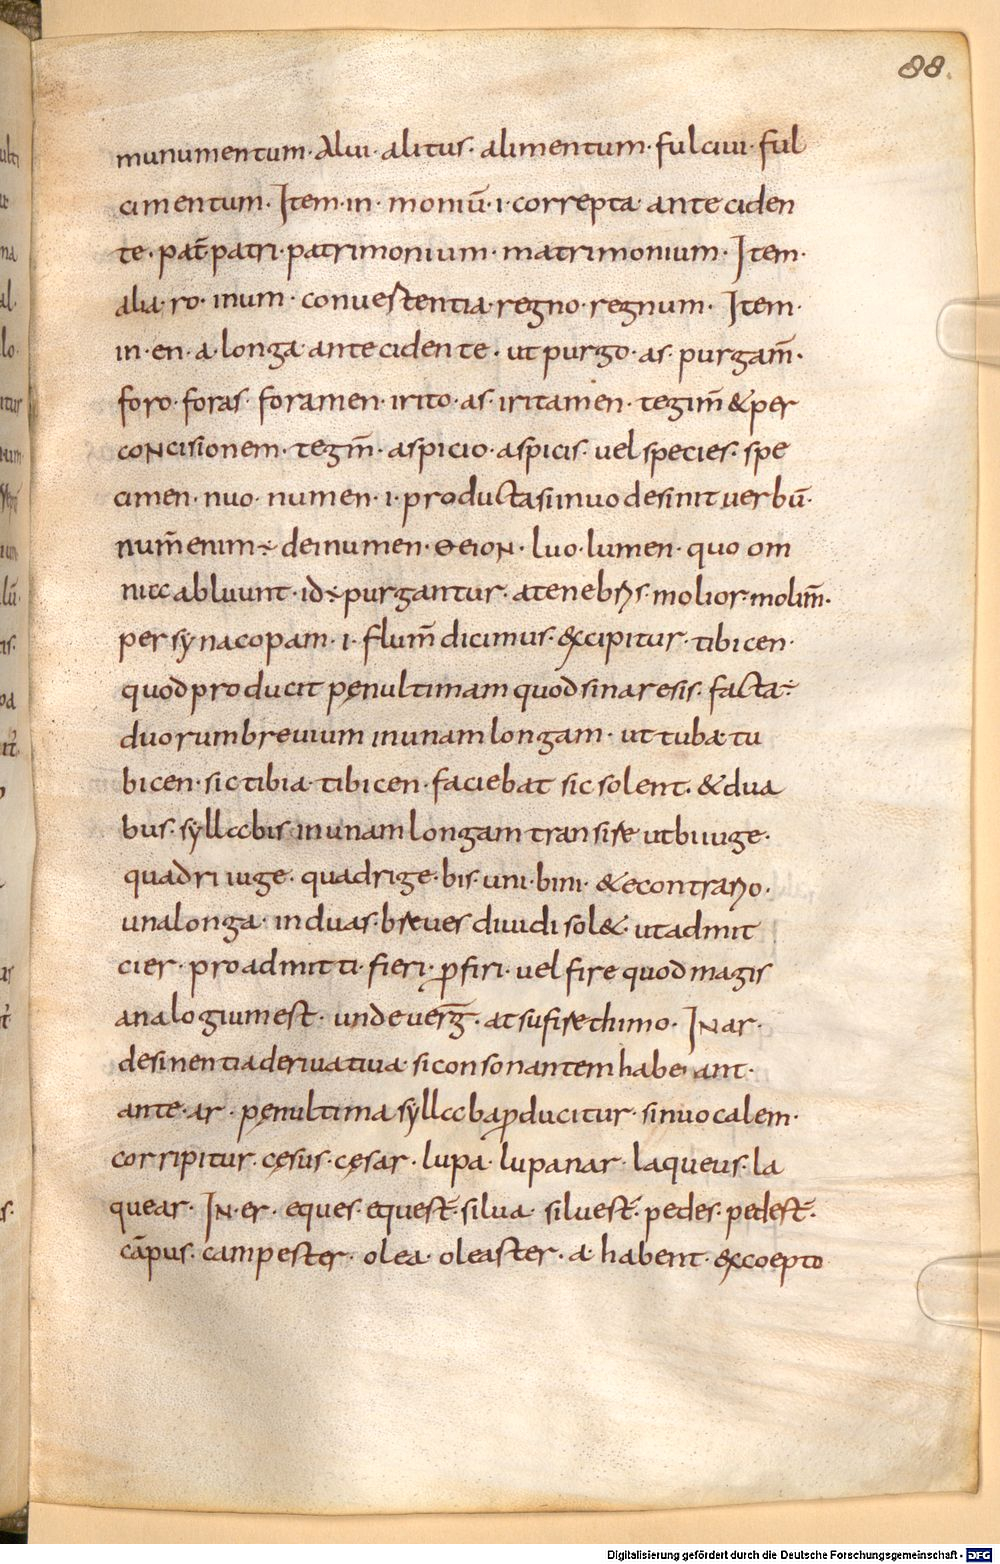 88.
munumentum· Alui· alitus· alimentum· fulciui· ful
cimentum· Item· in· moniū· i· correpta· ante ciden
te· pat̄· patri· patrimonium· matrimonium· Item·
alia· ro· inum· conuestentia· regno· regnum· Item·
in· en· a· longa· ante cidente· ut purgo· as· purgam̄·
foro· foras· foramen· irito· as· iritamen· tegim̄ & per
concisionem· tegm̄· aspicio· aspicis· uel species· spe
cimen· nuo· numen· i· producta si inuo desinit uerbū·
num̄ enim ÷ dei numen· ΘEION· luo· lumen· quo om
nia abluunt· id ÷ purgantur· a tenebris· molior· molim̄·
per synacopam· i· flum̄ dicimus· excipitur· tibicen·
quod producit penultimam quod sinaresis· facta ÷
duorum breuium in unam longam· ut tuba tu
bicen· sic tibia· tibicen· faciebat sic solent· & dua
bus· syllabis· in unam longam transire ut biiuge·
quadriiuge· quadrige· bis· uni· bini· & e contrario·
una longa· in duas· breues diuidi sol&· ut admit
cier· pro admitti· fieri· p̄ firi· uel fire quod magis
analogium est· unde uerḡ· at sufire thimo· IN ar·
desinentia deriuatiua· si consonantem habe ant·
ante· ar· penultima syllaba p̄ducitur· sin uocalem·
corripitur· cęsus· cęsar· lupa· lupanar· laqueus· la
quear· IN· er· eques· equest̄· silua· siluest̄· pedes· pedest̄·
cāpus· campester· olea· oleaster· a· habent· excoepto
Digitalisierung gefördert durch die Deutsche Forschungsgemeinschaft - DFG